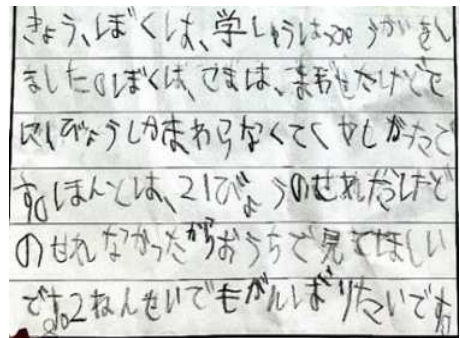 きょう、ぼくは、学しゅうはっぴょうかをし
ました。ぼくは、こまは、まわせたけどで
びょうしかまわらなくてくやしかたで
す。ほんとは、21びょうのせれたけど
のせれなかったからおうちで見てほしい
です。2ねんせいでもがんばりたいです。